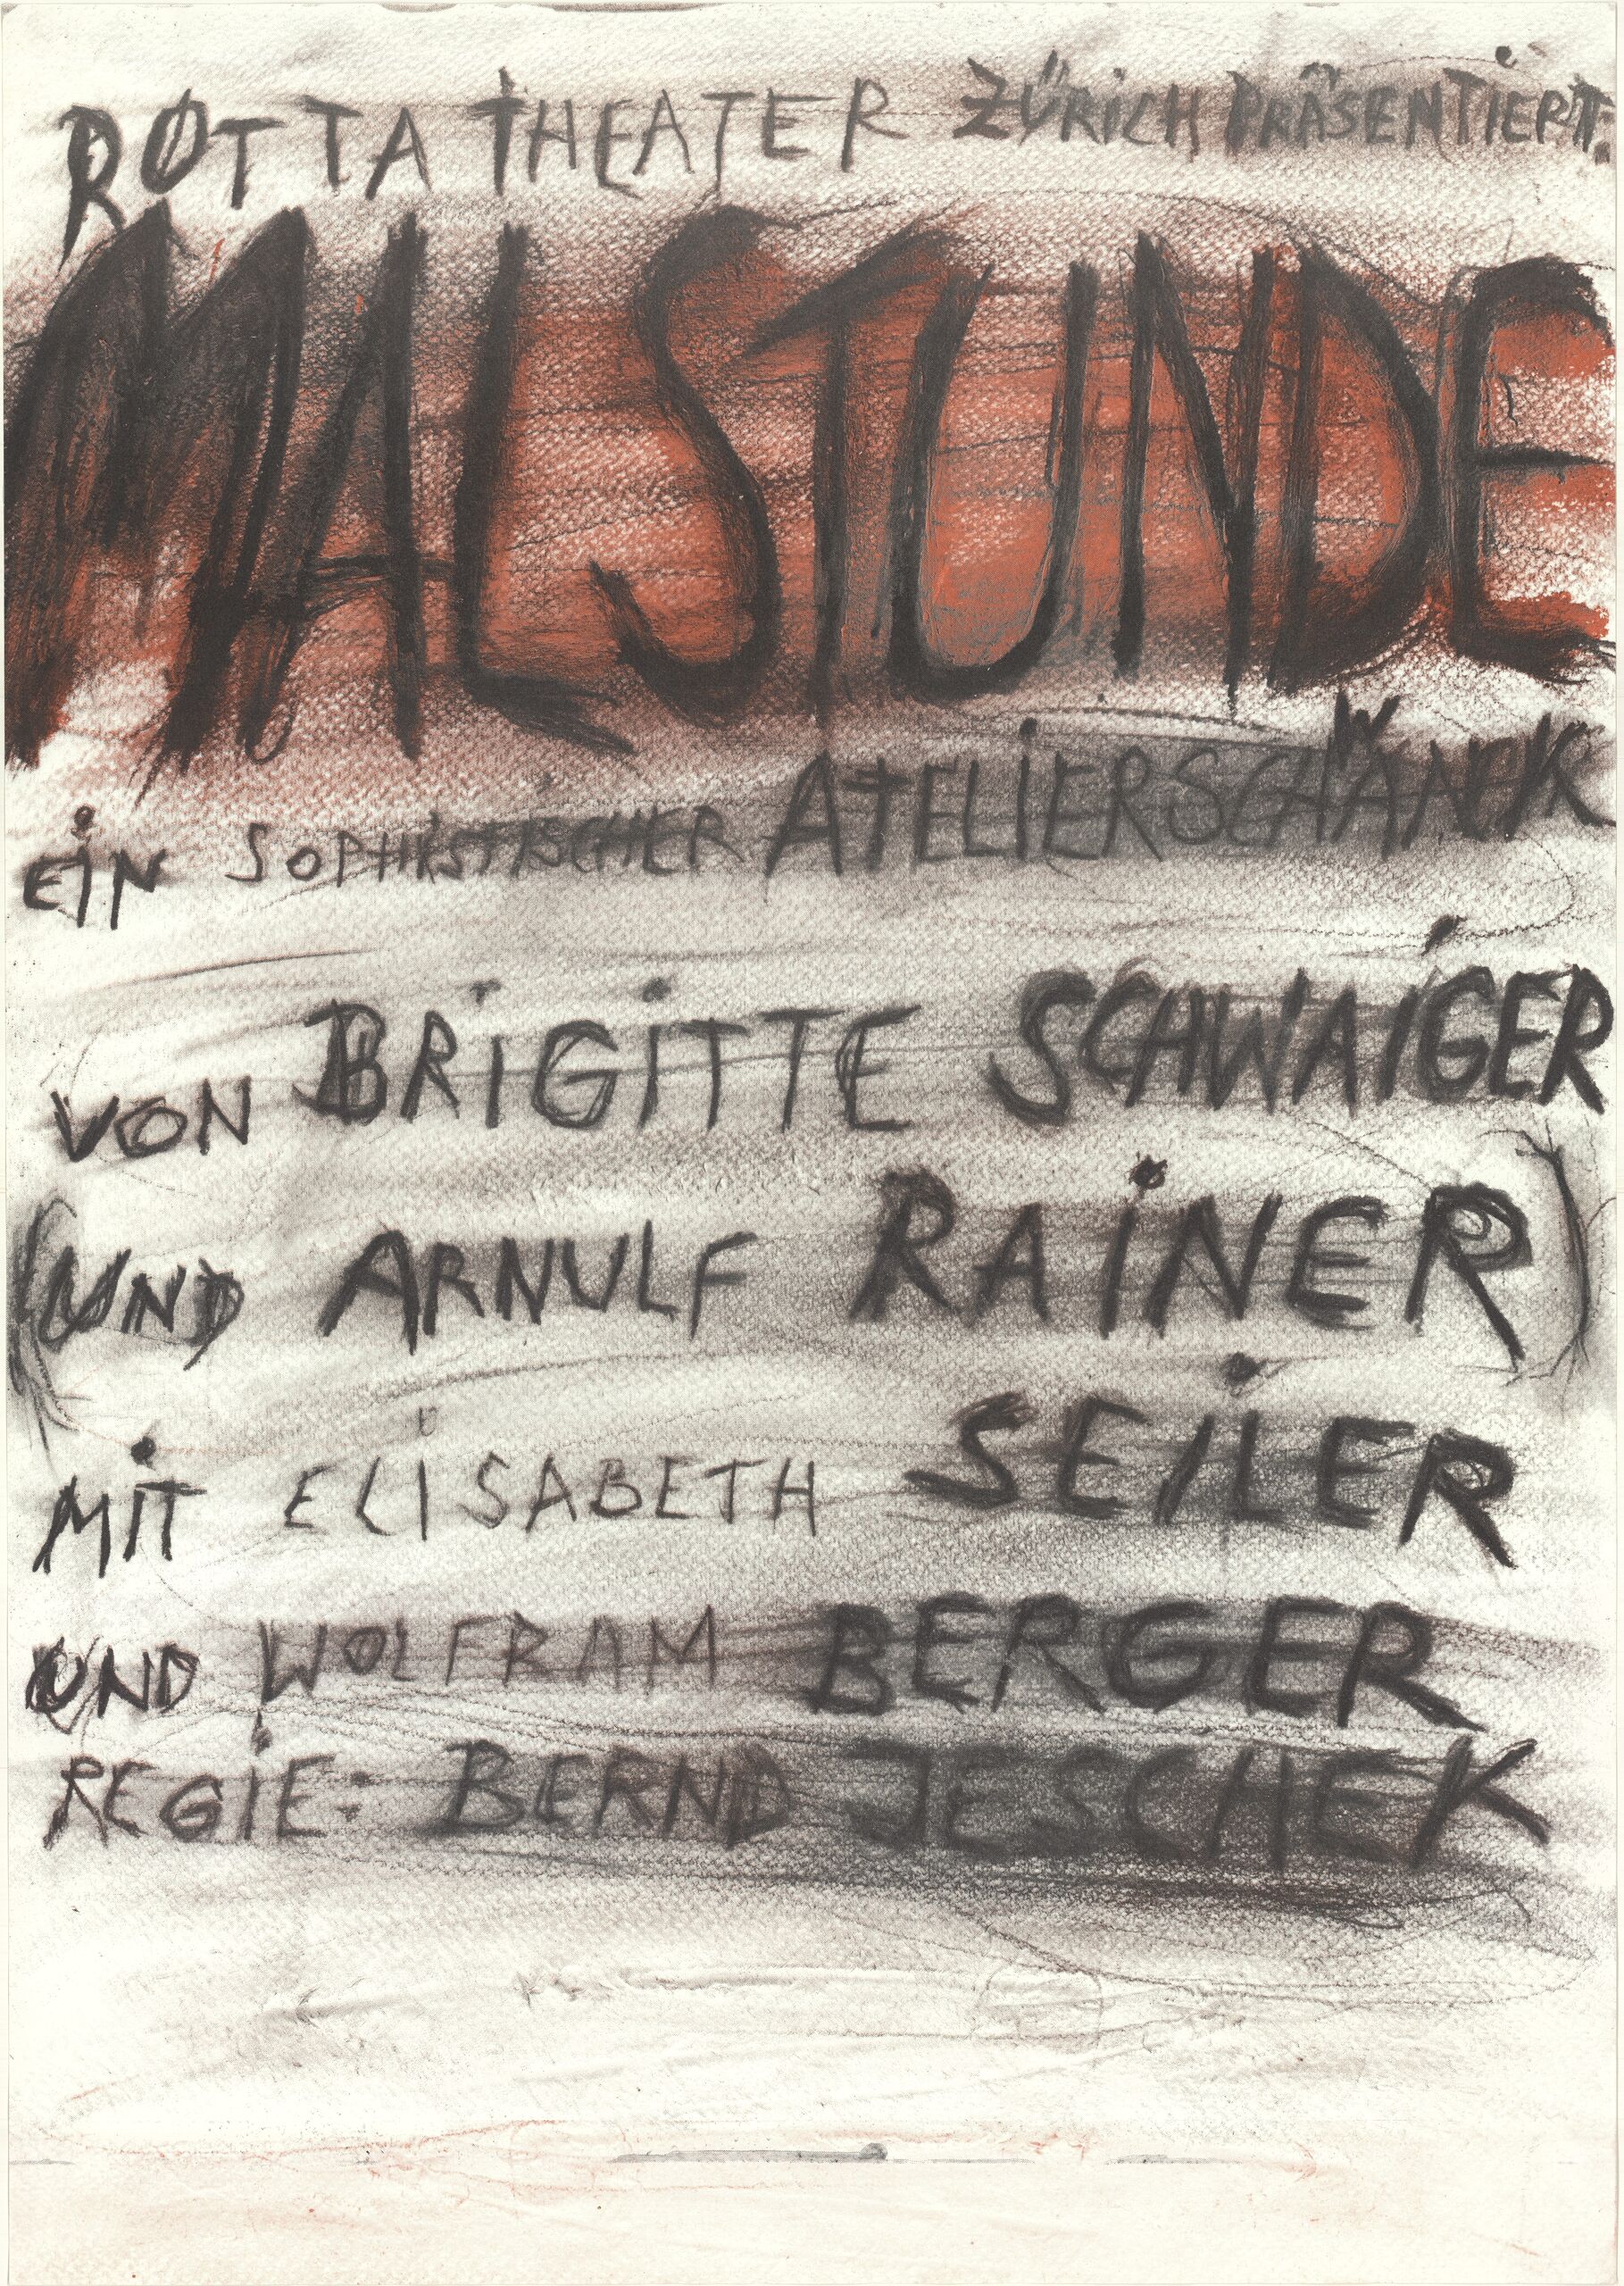 ROTTA THEATER ZÜRiCH PRÄSENTiERT:
MALSTUNDE
EiN SOPHiSTiSCHER ATELiERSCHWANK
VON BRiGiTTE SCHWAiGER
(UND ARNULF RAiNER)
MiT ELiSABETH SEiLER
UND WOLFRAM BERGER
REGiE: BERND JESCHEK